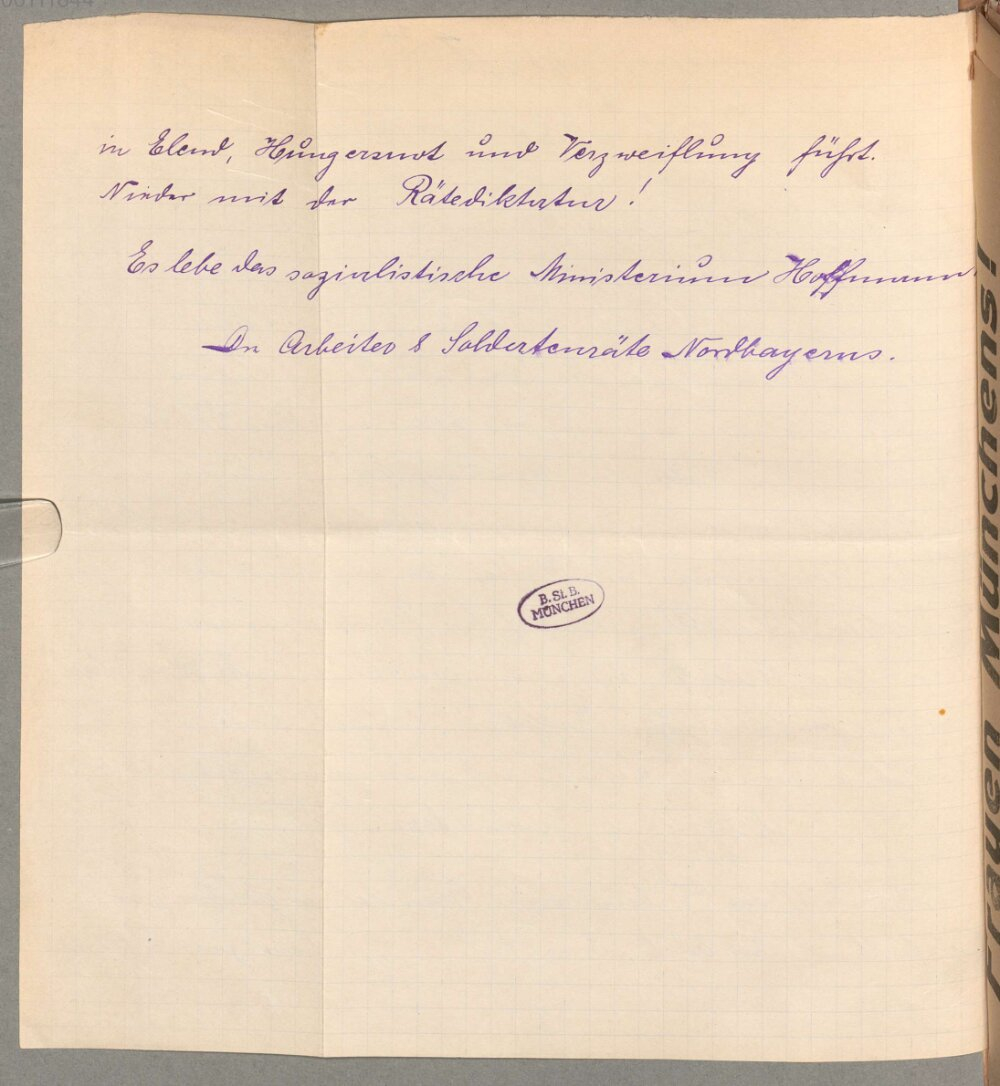 in Elend, Hungersnot und Verzweiflung führt.
Nieder mit der Rätediktatur!
Es lebe das sozialistische Ministerium Hoffmann
Arbeiter & Soldatenräte Nordbayerns.
B. St. B.
MÜNCHEN
Frauen Münchens!